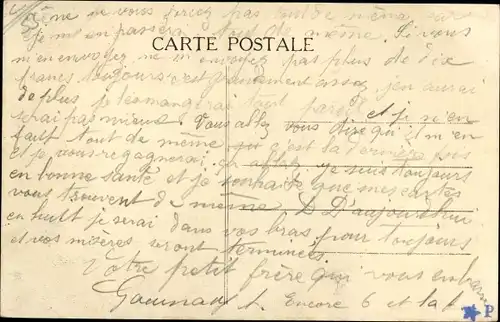 ne vous forcez pas tout de même, car
je m'en passerai tout de même. Si vous
CARTE POSTALE
m'en envoyez ne m'en envoyez pas plus de dix
francs toujours c'est grandement assez, j'en aurai
de plus, je les mangerai tout pareil et je n'en
serai pas mieux. Vous allez vous dire qu'il m'en
faut tout de même c'est la dernière fois
et je vous regagnerai, je suis toujours
en bonne santé et je souhaite que mes cartes
vous trouvent de même D D'aujourd'hui
en huit je serai dans vos bras pour toujours
et vos misères seront terminées
Votre petit frère qui vous embrasse
Encore 6 et la f
P